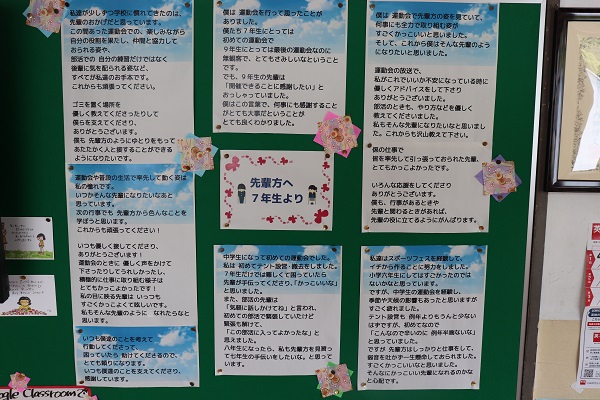 私達が少しずつ学校に慣れてきたのは、
先輩のおかげだと思っています。
この間あった運動会での、楽しみながら
自分の役割を果たし、仲間と協力して
おられる姿や、
部活での 自分の練習だけではなく
後輩に気を配られる姿など、
すべてが私達のお手本です。
これからも頑張ってください。
ゴミを置く場所を
優しく教えてくださったりして
僕らを支えてくださり、
ありがとうございます。
僕も 先輩方のようにゆとりをもって
あたたかく人と接することができる
ようになりたいです。
運動会や普段の生活で率先して動く姿は
私の憧れです。
いつかそんな先輩になりたいなあと
思っています。
次の行事でも 先輩方から色んなことを
学ぼうと思います。
これからも頑張ってください!
いつも優しく接してくださり、
ありがとうございます!
運動会のときに 優しく声をかけて
下さったりしてうれしかったし、
積極的に仕事に取り組む様子は
とてもかっこよかったです!
私の目に映る先輩は いつも
すごくかっこよくて眩しいです。
私もそんな先輩のように なれたらなと
思います。
いつも僕達のことを考えて
行動してくださって、
困っていたら 助けてくださるので、
とても頼りになります。
いつも僕達のことを支えてくださり、
感謝しています。
僕は 運動会を行って思ったことが
ありました。
僕たち7年生にとっては
初めての運動会で
9年生にとっては最後の運動会なのに
無観客で、とてもさみしいなということ
です。
でも、9年生の先輩は
「開催できることに感謝したい」と
おっしゃっていました。
僕はこの言葉で、何事にも感謝すること
がとても大事だということが
とても良くわかりました。
先輩方へ
7年生より
中学生になって初めての運動会でした。
私は 初めてテント設営・撤去をしました。
7年生だけでは難しくて困っていたら
先輩が手伝ってくださり、「かっこいいな」
と思いました。
また、部活の先輩は
「気軽に話しかけてね」と言われ、
初めての部活で緊張していたけど
緊張も解けて、
「この部活に入ってよかったな」と
思えました。
八年生になったら、私も先輩方を見習っ
て七年生の手伝いをしたいな。と思って
います。
僕は 運動会で先輩方の姿を見ていて、
何事にも全力で取り組む姿が
すごくかっこいいと思いました。
そして、これから僕はそんな先輩のよう
になりたいと思いました。
運動会の放送で、
私がこれでいいか不安になっている時に
優しくアドバイスをして下さり
ありがとうございました。
部活のときも、やり方などを優しく
教えてくださいました。
私もそんな先輩になりたいなと思いまし
た。これからも沢山教えて下さい。
僕の仕事で
皆を率先して引っ張っておられた先輩、
とてもかっこよかったです。
いろんな応援をしてくださり
ありがとうございます。
僕も、行事があるときや
先輩と関わるときがあれば、
先輩の役に立てるようにがんばります。
私達はスポーツフェスを経験して、
イチから作ることに努力をしました。
小学六年生にしてはすごかったのでは
ないかなと思っています。
ですが、中学生の運動会を経験し、
季節や天候の影響もあったと思いますが
すごく疲れました。
テント設営も 例年よりもうんと少ない
はずですが、初めてなので
「こんなので辛いのに 例年半端ないな」
と思っています。
ですが 先輩方はしっかりと仕事をして、
弱音を吐かず一生懸命しておられました。
すごくかっこいいなと思いました。
そんなにかっこいい先輩になれるのかな
と心配です。
gle Classroomで